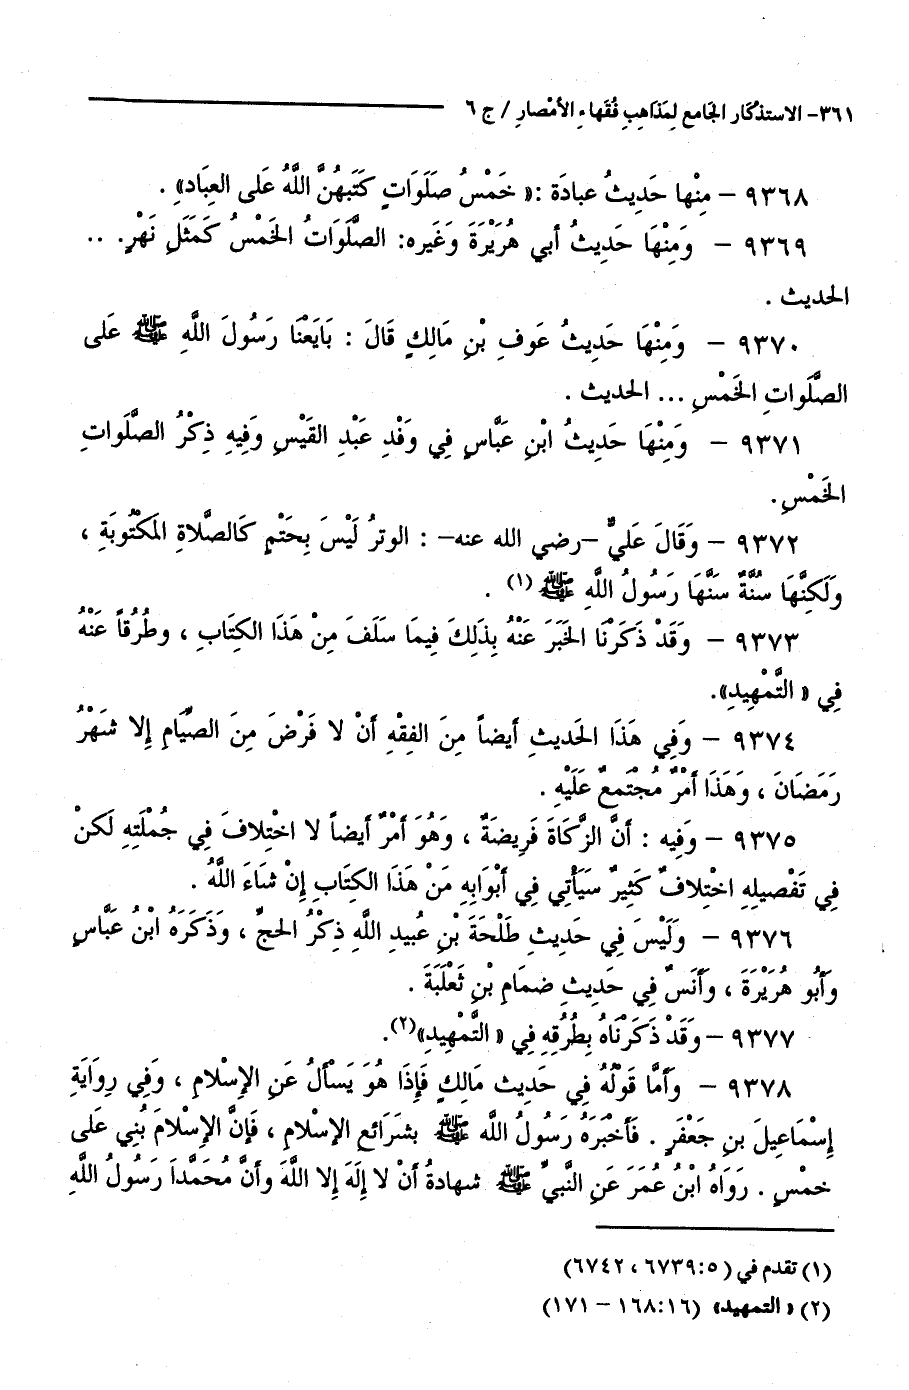 ٣٦١- الاستذكار الجامع لِمَذَاهِبِ فُقَهاءِ الأمْصارِ / ج ٦
٩٣٦٨ – مِنْها حَدِيثُ عبادَة :« خَمْسُ صَلَوَاتٍ كَتَبَهُنَّ اللَّهُ عَلى العِبَاد» .
٩٣٦٩ – وَمِنْهَا حَدِيثُ أبي هُرَيْرَةَ وَغَيره: الصَّلَوَاتُ الخَمْسُ كَمَثَلِ نَهْرٍ. ..
الحديث .
٩٣٧٠ – وَمِنْهَا حَدِيثُ عَوفِ بْنِ مَالِكٍ قَالَ : بَايَعْنَا رَسُولَ اللَّهِ ﷺ عَلى
الصَّلَواتِ الخَمْسِ ... الحديث .
٩٣٧١ – وَمِنْهَا حَدِيثُ ابْنِ عَبَّاسٍ فِي وَفْدِ عَبْدِ القَيْسِ وَفِيهِ ذِكْرُ الصَّلَواتِ
الخَمْسِ.
٩٣٧٢ – وَقَالَ عَليٌّ –رضي الله عنه– : الوترُ لَيْسَ بِحَتْمٍ كَالصَّلاةِ المَكْتُوبَةِ ،
وَلَكِنَّهَا سُنَّةٌ سَنَّهَا رَسُولُ اللَّهِ ﷺ (١) .
٩٣٧٣ – وَقَدْ ذَكَرْنَا الخَبَرَ عَنْهُ بِذَلِكَ فِيمَا سَلَفَ مِنْ هَذَا الكِتَابِ ، وطُرُقاً عَنْهُ
فِي « التَّمْهِيدِ».
٩٣٧٤ – وَفِي هَذَا الحَديثِ أيضاً مِنَ الفِقْهِ أنْ لا فَرْضَ مِنَ الصِّيَامِ إلا شَهْرُ
رَمَضَانَ ، وَهَذَا أمْرٌ مُجْتَمعٌ عَلَيْهِ .
٩٣٧٥ – وَفِيه : أنَّ الزَّكَاةَ فَرِيضَةٌ ، وَهُوَ أمْرٌ أيضاً لا اخْتِلافَ فِي جُمْلَتِهِ لَكنْ
فِي تَفْصيلِهِ اخْتِلافٌ كَثِيرٌ سَيَأْتِي فِي أبْوَابِهِ مَنْ هَذَا الكِتَابِ إِنْ شَاءَ اللَّهُ .
٩٣٧٦ – وَلَيْسَ فِي حَدِيثِ طَلْحَةَ بْنِ عُبيدِ اللَّهِ ذِكْرُ الحجِّ ، وَذَكَرَهُ ابْنُ عَبَّاسٍ
وَأَبُو هُرَيْرَةَ ، وَأَنَسٌ فِي حَدِيثِ ضمَامِ بْنِ ثَعْلَبَةَ .
٩٣٧٧ –وَقَدْ ذَكَرْنَاهُ بِطُرُقِهِ فِي « التَّمْهِيدِ»(٢).
٩٣٧٨ – وَأَمَّا قَوْلُهُ فِي حَدِيث مَالِكٍ فَإِذَا هُوَ يَسْألُ عَنِ الإسْلامِ ، وَفِي رِوَايَةِ
إسْمَاعِيلَ بنِ جَعْفَرٍ . فَأخْبَرَهُ رَسُولُ اللَّه ﷺ بشَرَائعِ الإسْلامِ ، فَإِنَّ الإسْلامَ بُنِي عَلى
خمْسٍ . رَوَاهُ ابْنُ عُمَرَ عَنِ النَّبيِّ ﷺ شهادةُ أنْ لا إلَهَ إلا اللَّهَ وأنَّ مُحَمَّداً رَسُولُ اللَّهِ
(١) تقدم في (٥:٦٧٣٩ ، ٦٧٤٢)
(٢) « التمهيد» (١٦:١٦٨ – ١٧١)